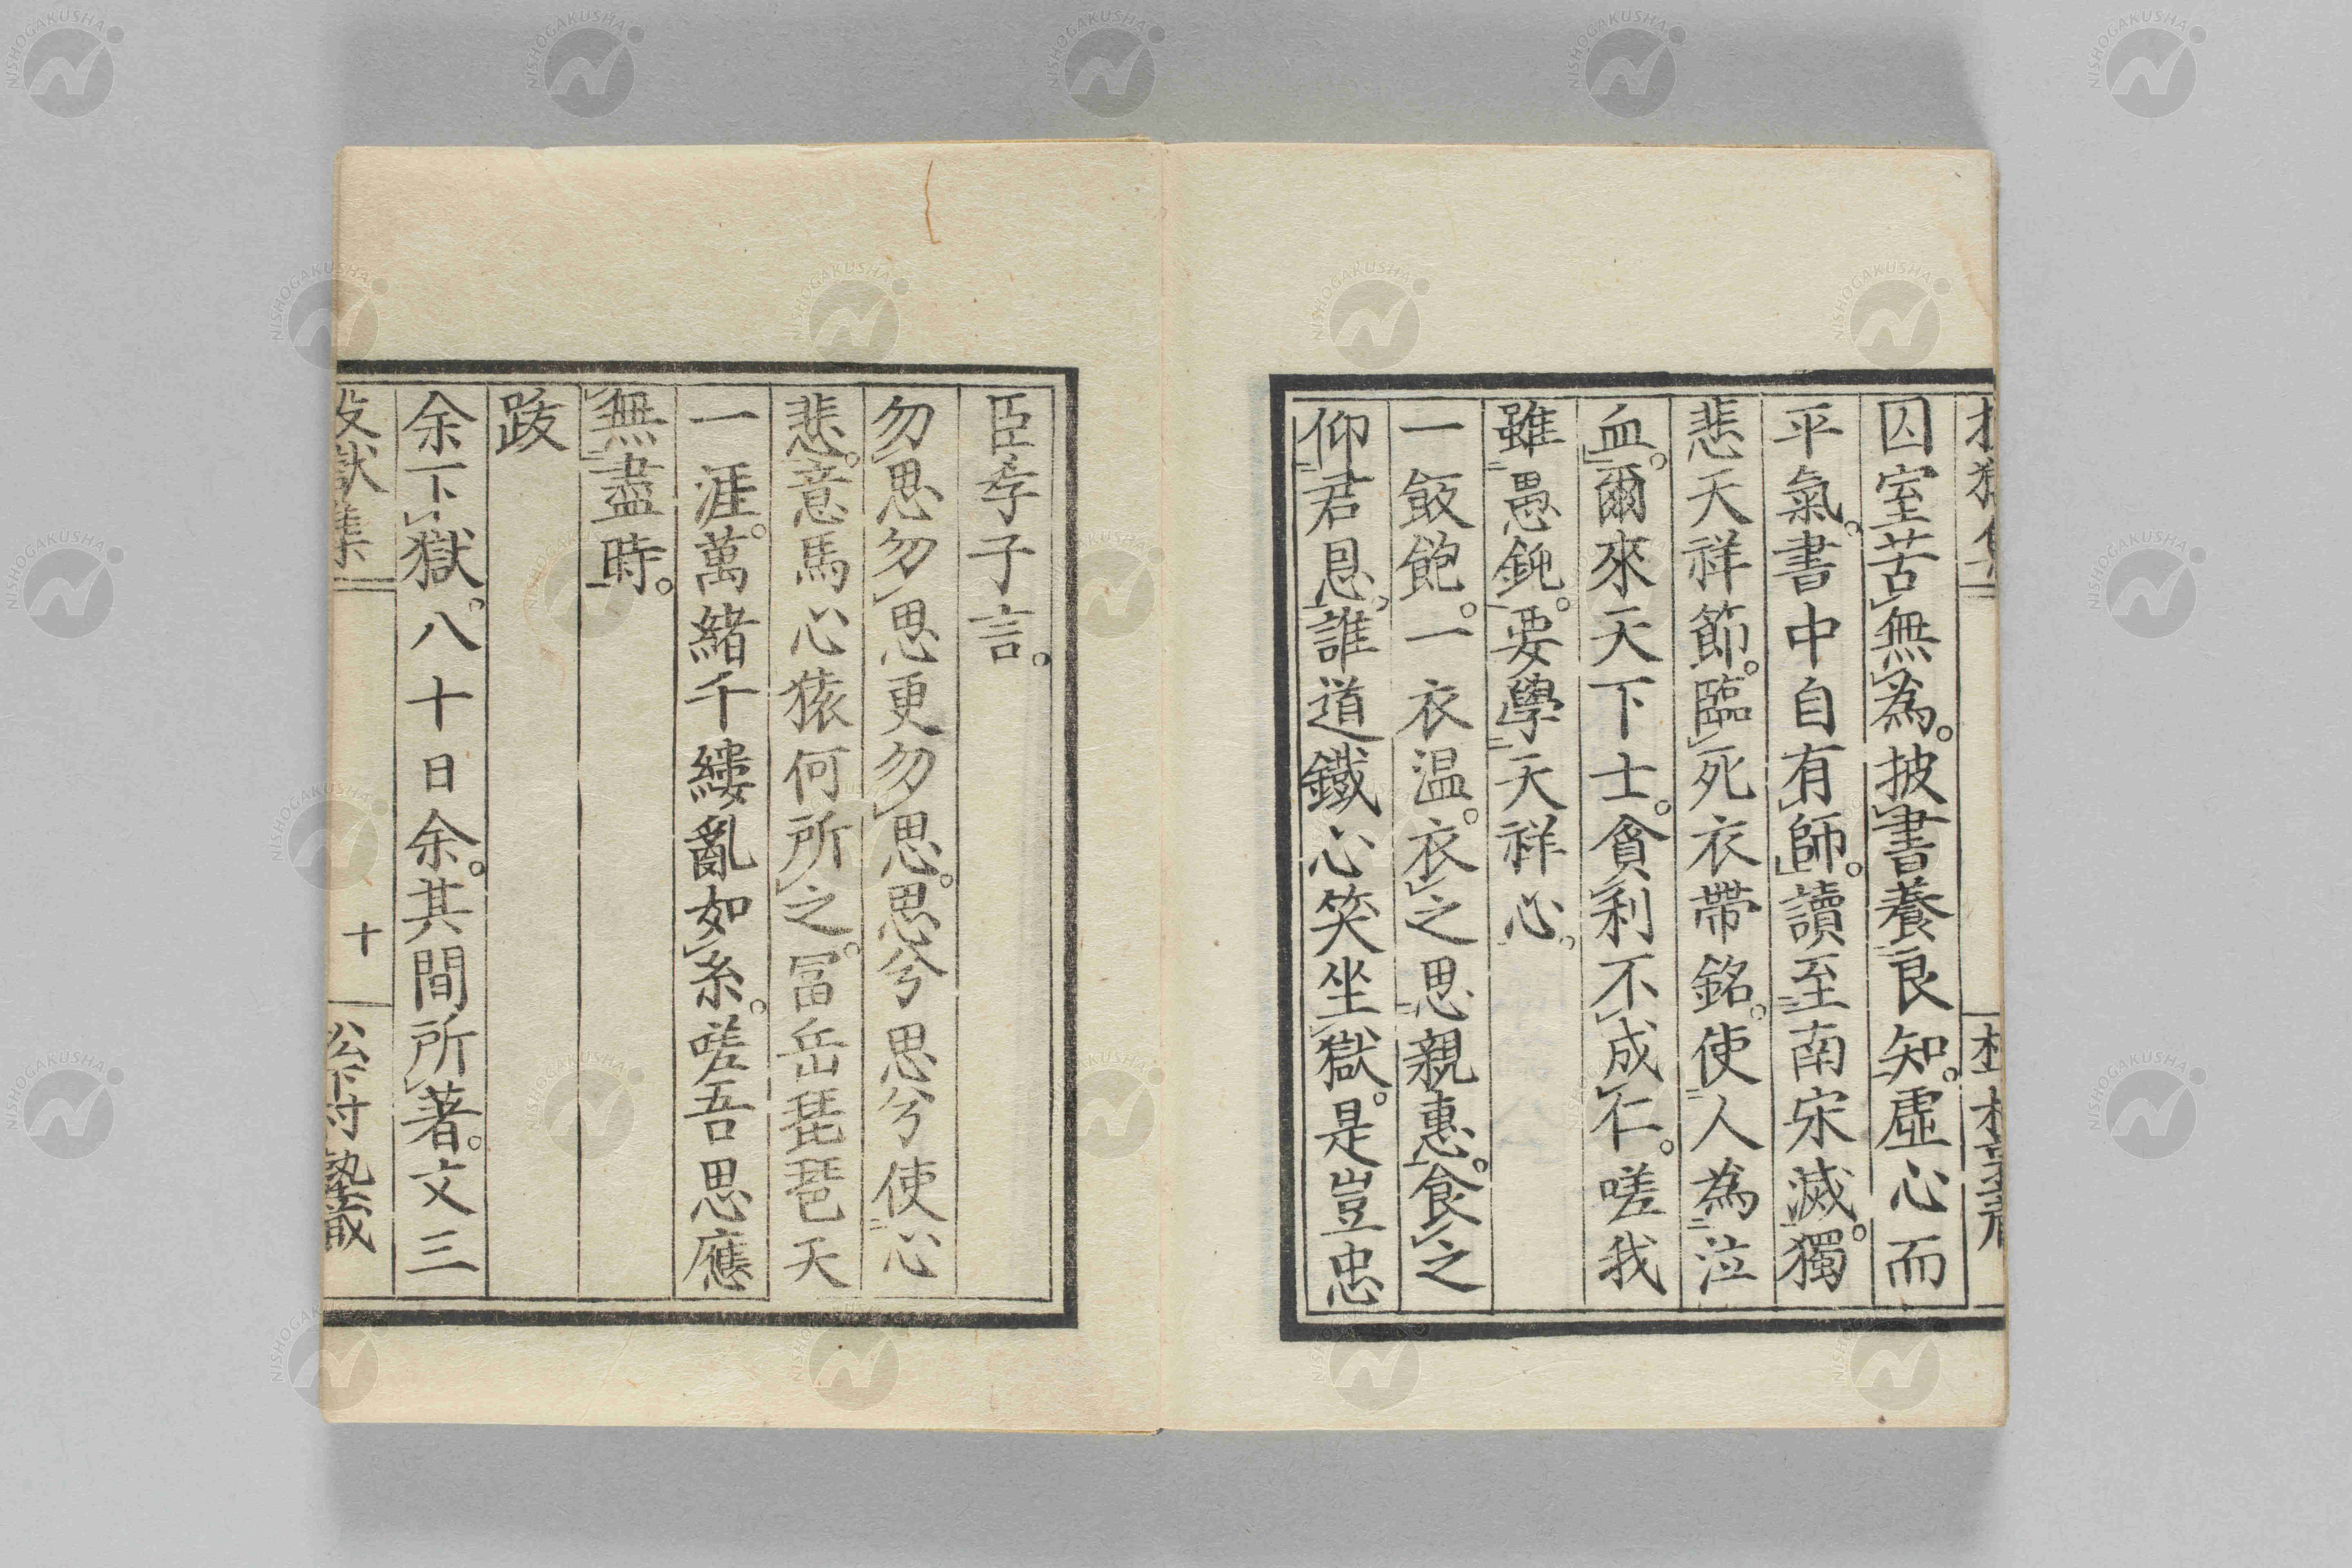 囚室苦無為。披書養良知。虛心而
平氣。書中自有師。讀至南宋滅。獨
悲天祥節。臨死衣帶銘。使人為泣
血。爾來天下士。貪利不成仁。嗟我
雖愚鈍。要學天祥心。
一飯飽。一衣温。衣之思親惠。食之
仰君恩。誰道鐵心笑坐獄。是豈忠
臣孝子言。
勿思勿思更勿思。思兮思兮使心
悲。意馬心猿何所之。冨岳琵琶天
一涯。萬緒千縷亂如糸。嗟吾思應
無盡時。
跋
余下獄。八十日余。其間所著。文三
投獄集
十
松下村塾蔵
NISHOGAKUSHA